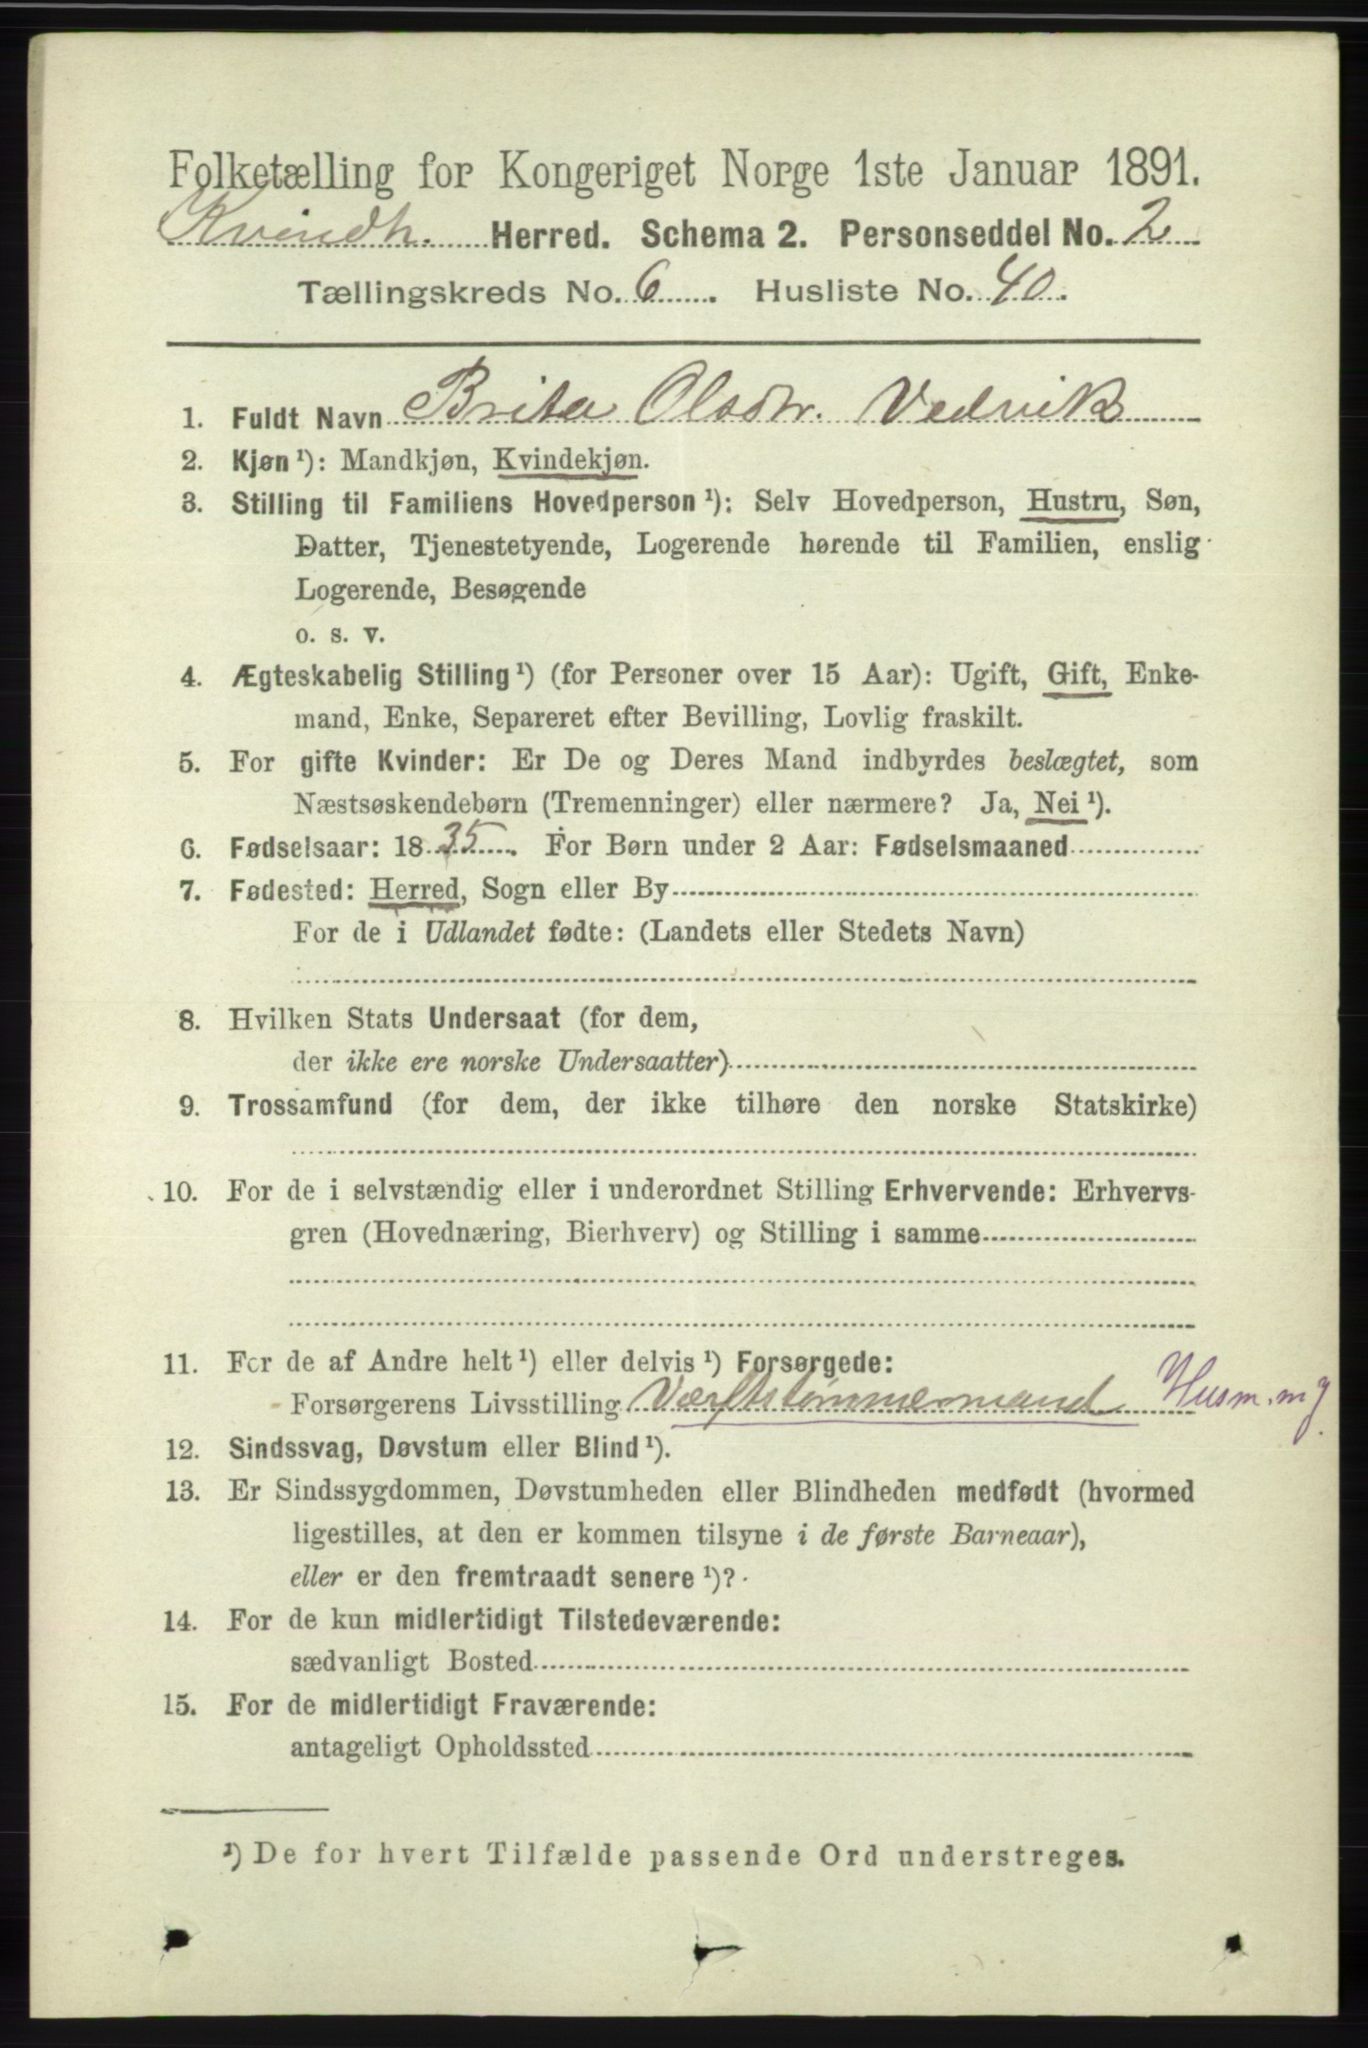 Folketælling for Kongeriget Norge 1ste Januar 1891.
Kvindh. Herred. Schema 2. Personseddel No. 2
Tællingskreds No. 6. Husliste No. 40.
1. Fuldt Navn Brita Olsdtr. Vedvik
2. Kjøn ¹): Mandkjøn, Kvindekjøn.
3. Stilling til Familiens Hovedperson ¹): Selv Hovedperson, Hustru, Søn,
Datter, Tjenestetyende, Logerende hørende til Familien, enslig
Logerende, Besøgende
o. s. v.
4. Ægteskabelig Stilling ¹) (for Personer over 15 Aar): Ugift, Gift, Enke-
mand, Enke, Separeret efter Bevilling, Lovlig fraskilt.
5. For gifte Kvinder: Er De og Deres Mand indbyrdes beslægtet, som
Næstsøskendebørn (Tremenninger) eller nærmere? Ja, Nei ¹).
6. Fødselsaar: 1835. For Børn under 2 Aar: Fødselsmaaned
7. Fødested: Herred, Sogn eller By
For de i Udlandet fødte: (Landets eller Stedets Navn)
8. Hvilken Stats Undersaat (for dem,
der ikke ere norske Undersaatter)
9. Trossamfund (for dem, der ikke tilhøre den norske Statskirke)
10. For de i selvstændig eller i underordnet Stilling Erhvervende: Erhvervs-
gren (Hovednæring, Bierhverv) og Stilling i samme
11. For de af Andre helt ¹) eller delvis ¹) Forsørgede:
Forsørgerens Livsstilling Værftstømmermand Husm. m j
12. Sindssvag, Døvstum eller Blind ¹).
13. Er Sindssygdommen, Døvstumheden eller Blindheden medfødt (hvormed
ligestilles, at den er kommen tilsyne i de første Barneaar),
eller er den fremtraadt senere ¹)?
14. For de kun midlertidigt Tilstedeværende:
sædvanligt Bosted
15. For de midlertidigt Fraværende:
antageligt Opholdssted
¹) De for hvert Tilfælde passende Ord understreges.